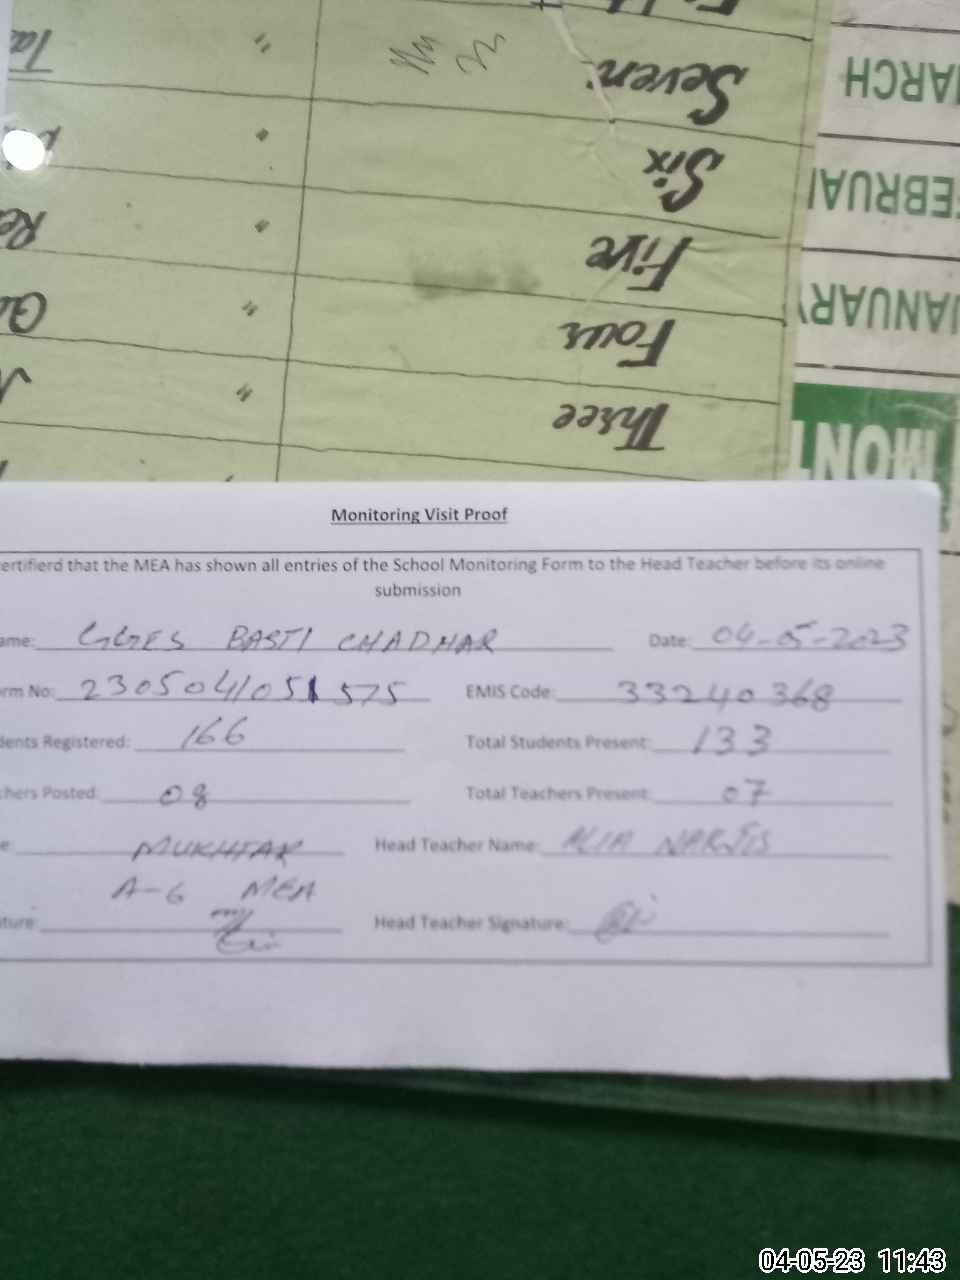 Seven
Six
Five
Four
Three
ARCH
EBRUA
ANUARY
MONT
Monitoring Visit Proof
ertifierd that the MEA has shown all entries of the School Monitoring Form to the Head Teacher before its online
submission
ame: GGES BASTI CHADHAR Date: 04-05-2023
rm No: 2305041051575 EMIS Code: 33240368
dents Registered: 166 Total Students Present: 133
chers Posted: 08 Total Teachers Present: 07
e MUKHTAR Head Teacher Name: ALIA NARJIS
A-6 MEA
ature: Head Teacher Signature:
04-05-23 11:43